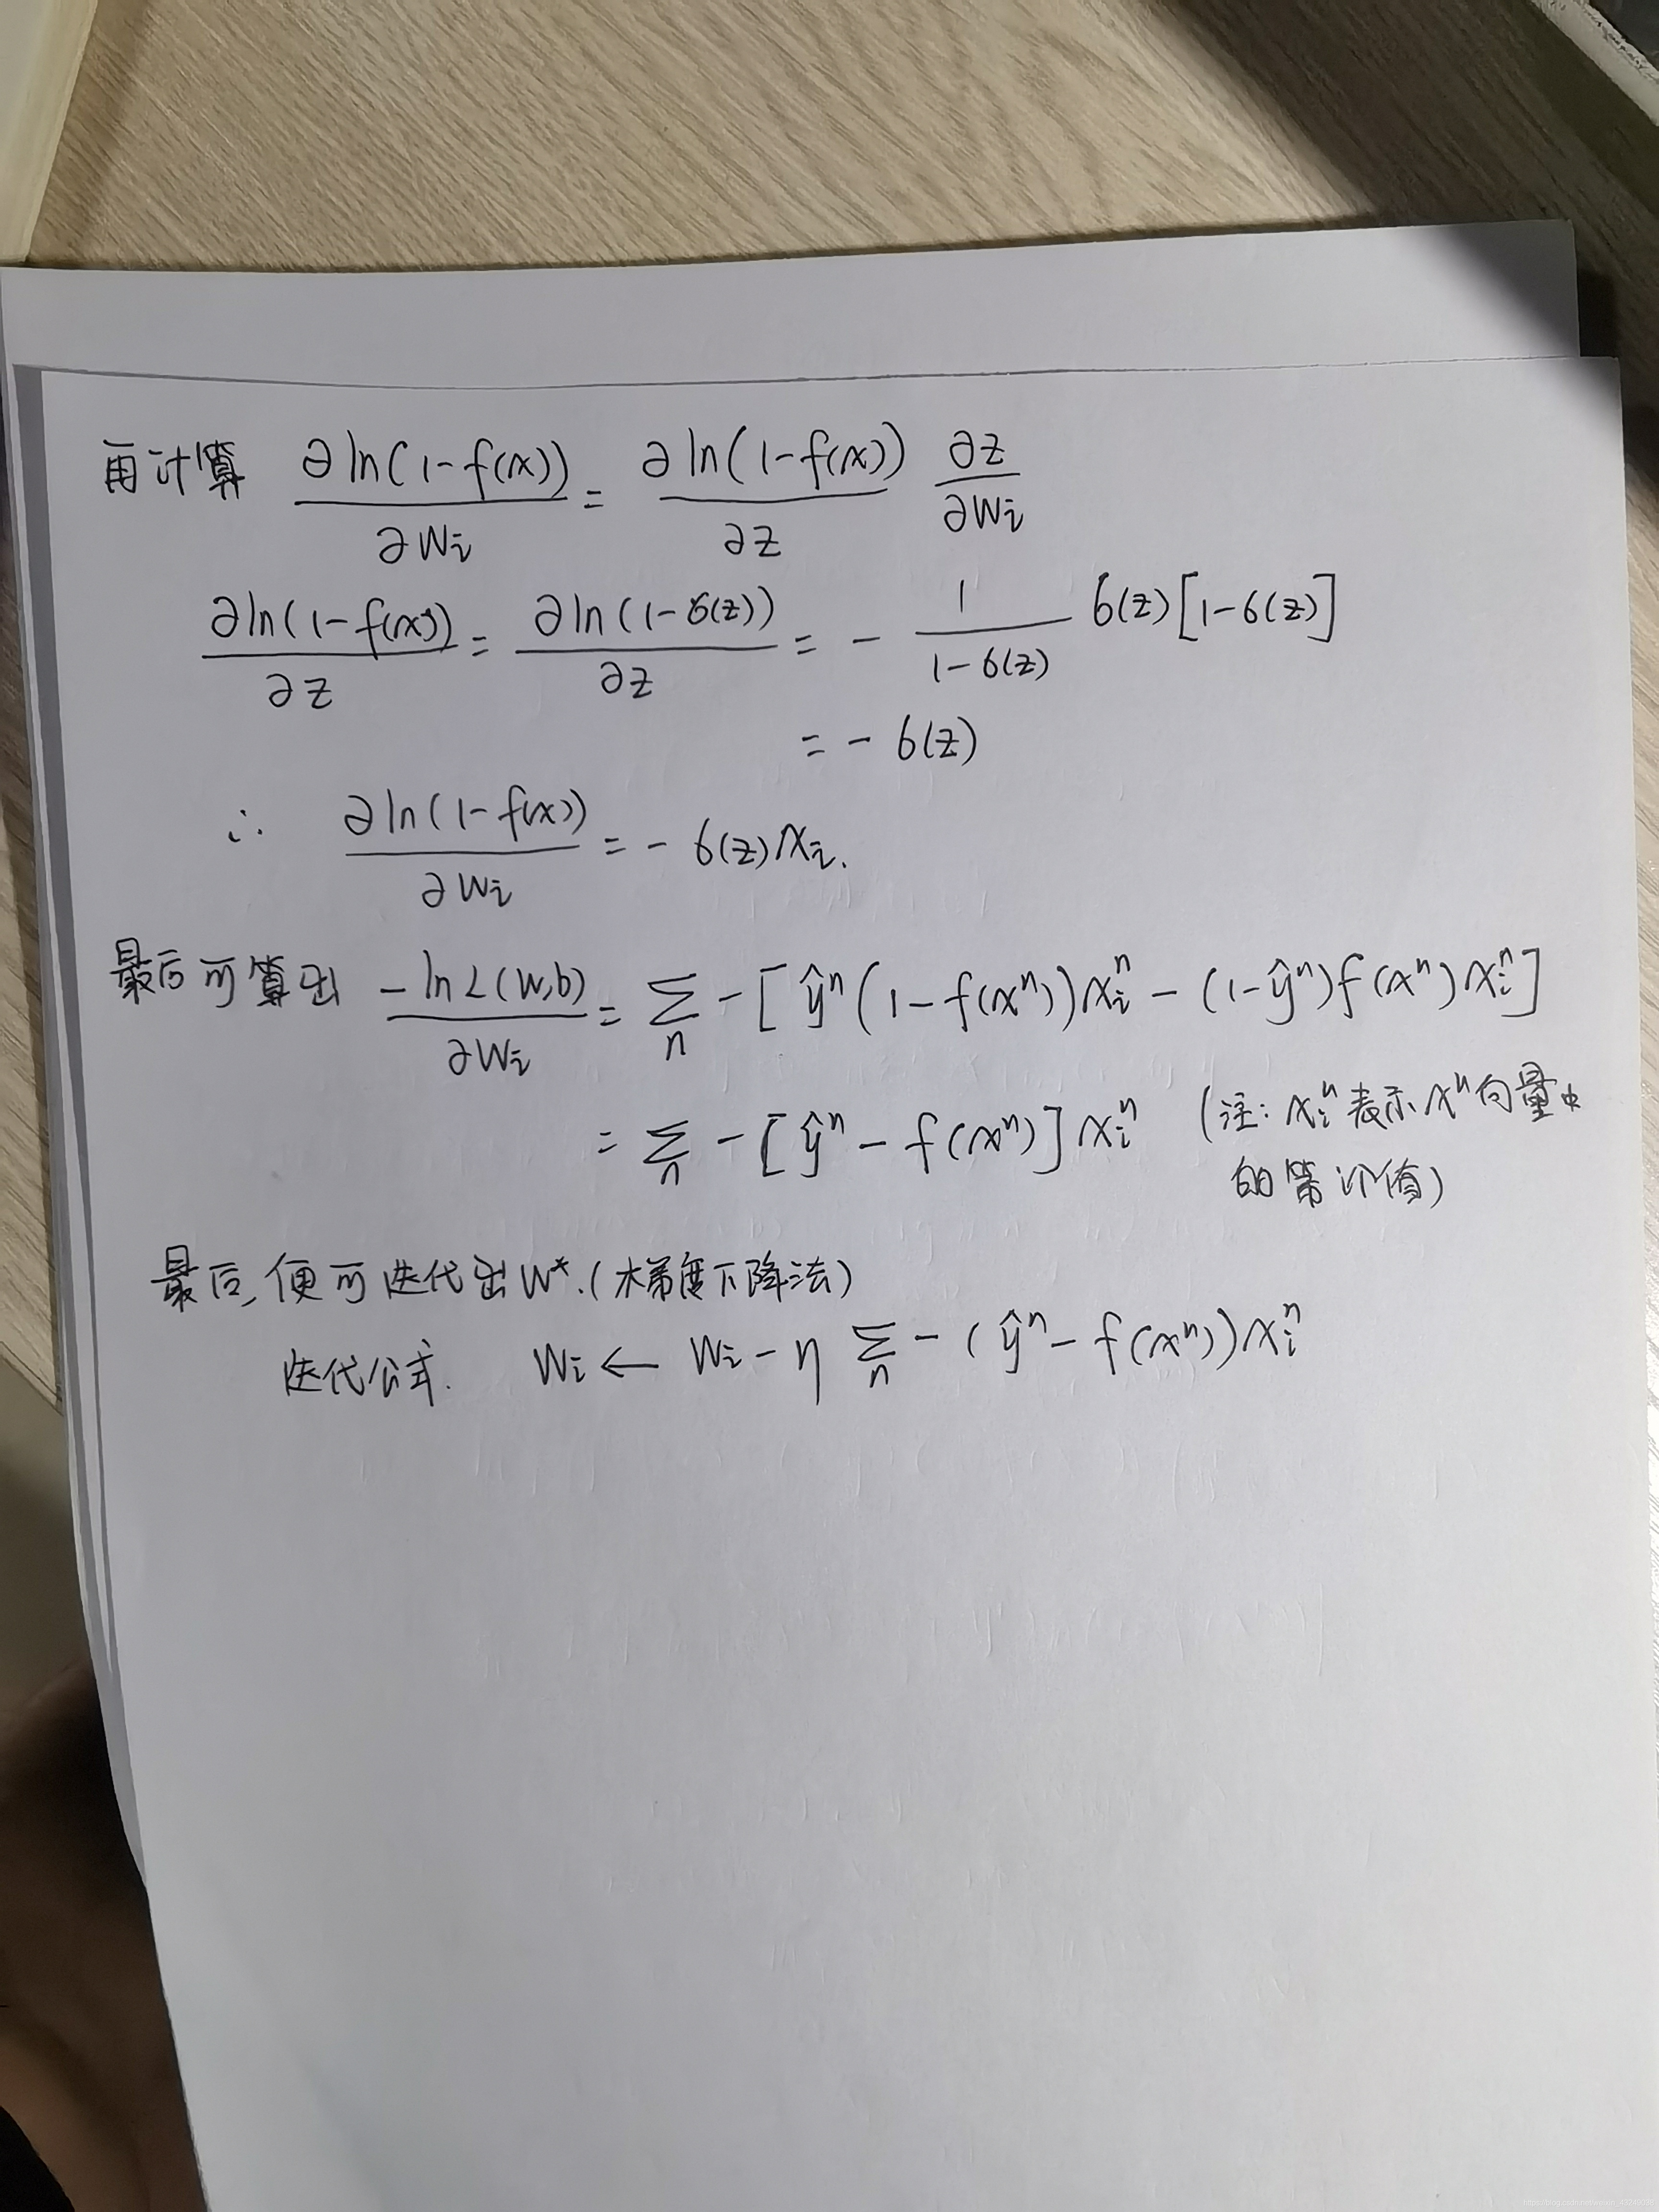 再计算 ∂ln(1-f(x))/∂wi = ∂ln(1-f(x))/∂z ∂z/∂wi
∂ln(1-f(x))/∂z = ∂ln(1-σ(z))/∂z = - 1/(1-σ(z)) σ(z)[1-σ(z)]
= - σ(z)
∴ ∂ln(1-f(x))/∂wi = - σ(z)xi.
最后可算出 -lnL(w,b)/∂wi = Σn -[ŷⁿ(1-f(xⁿ))xiⁿ - (1-ŷⁿ)f(xⁿ)xiⁿ]
= Σn -[ŷⁿ - f(xⁿ)]xiⁿ (注: xiⁿ表示xⁿ向量中
的第i个值)
最后,便可迭代出w*.(梯度下降法)
迭代公式. wi ← wi - η Σn -(ŷⁿ - f(xⁿ))xiⁿ